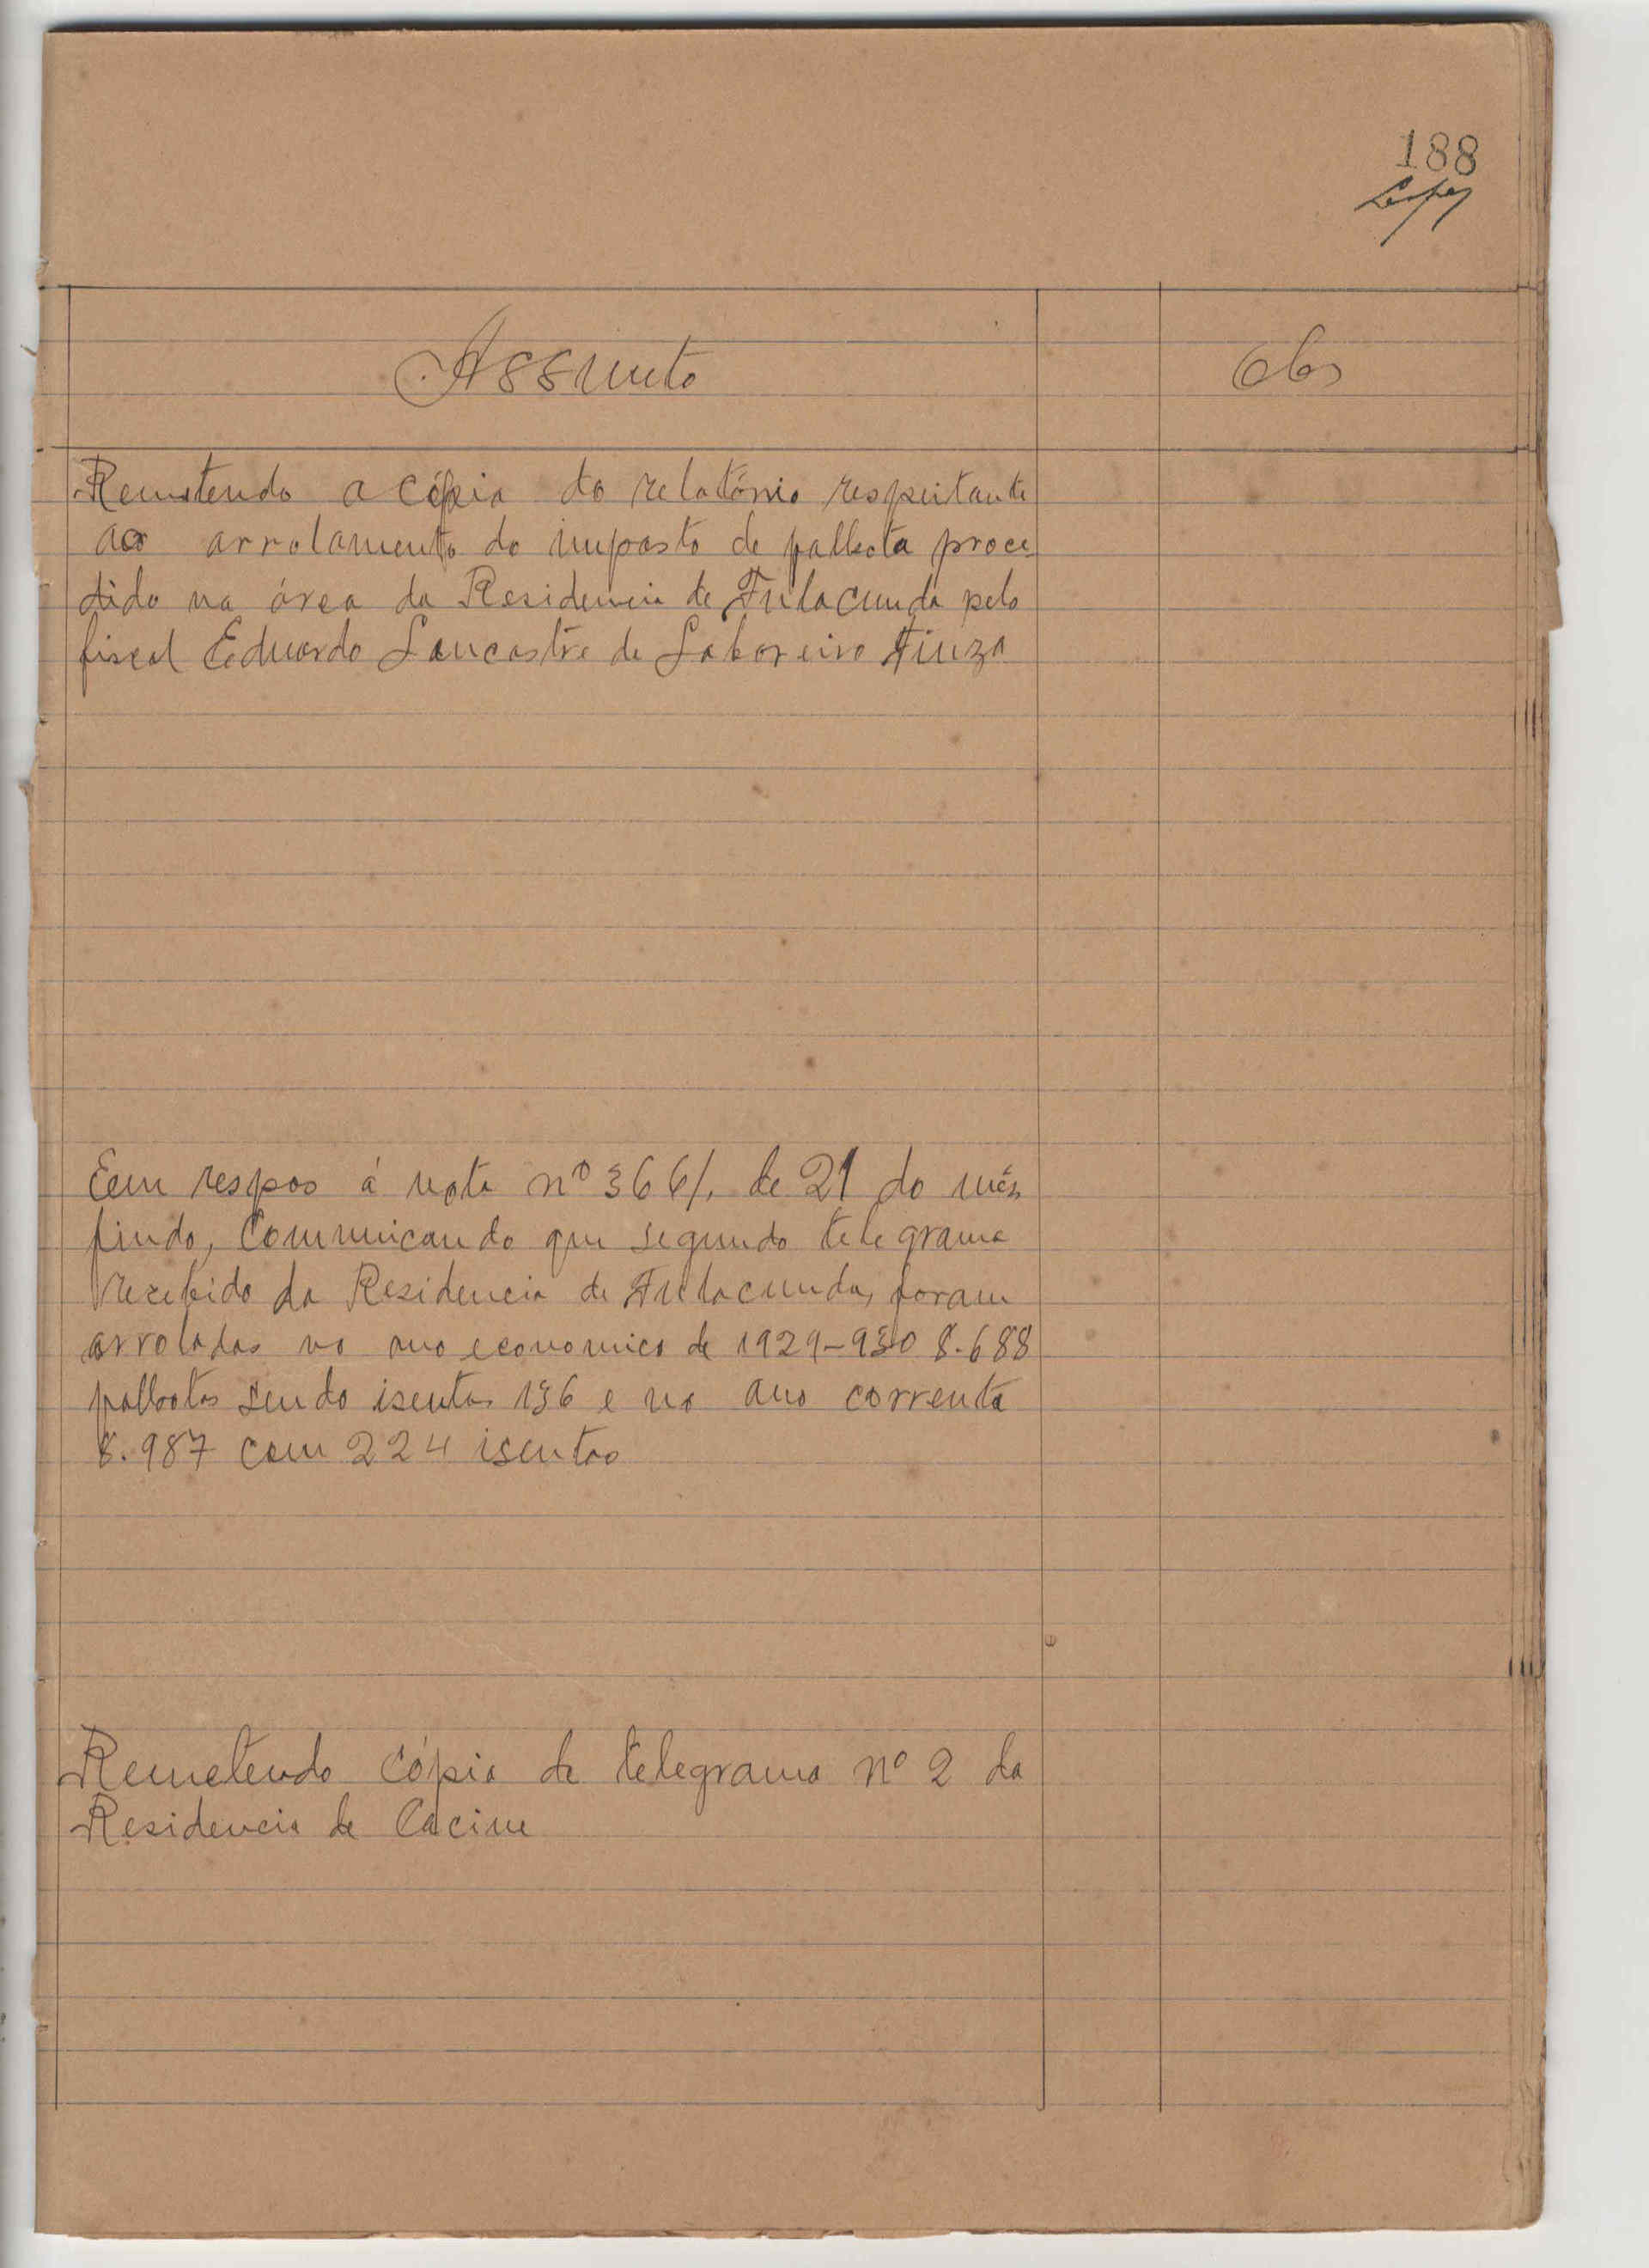 188
Lopes
Assunto
Obs
Remetendo a cópia do relatório respeitante
ao arrolamento do imposto de palhota proce
dido na área da Residencia de Fulacunda pelo
fiscal Eduardo Lencastre de Laboreiro Fiuza
Em respos á nota nº 366/. de 21 do mês
findo, Communicando que segundo telegrama
recebido da Residencia de Fulacunda, foram
arroladas no ano economico de 1929-930 8.688
palhotas sendo isentas 136 e no ano corrente
8.987 com 224 isentas
Remetendo cópia de telegrama nº 2 da
Residencia de Cacine